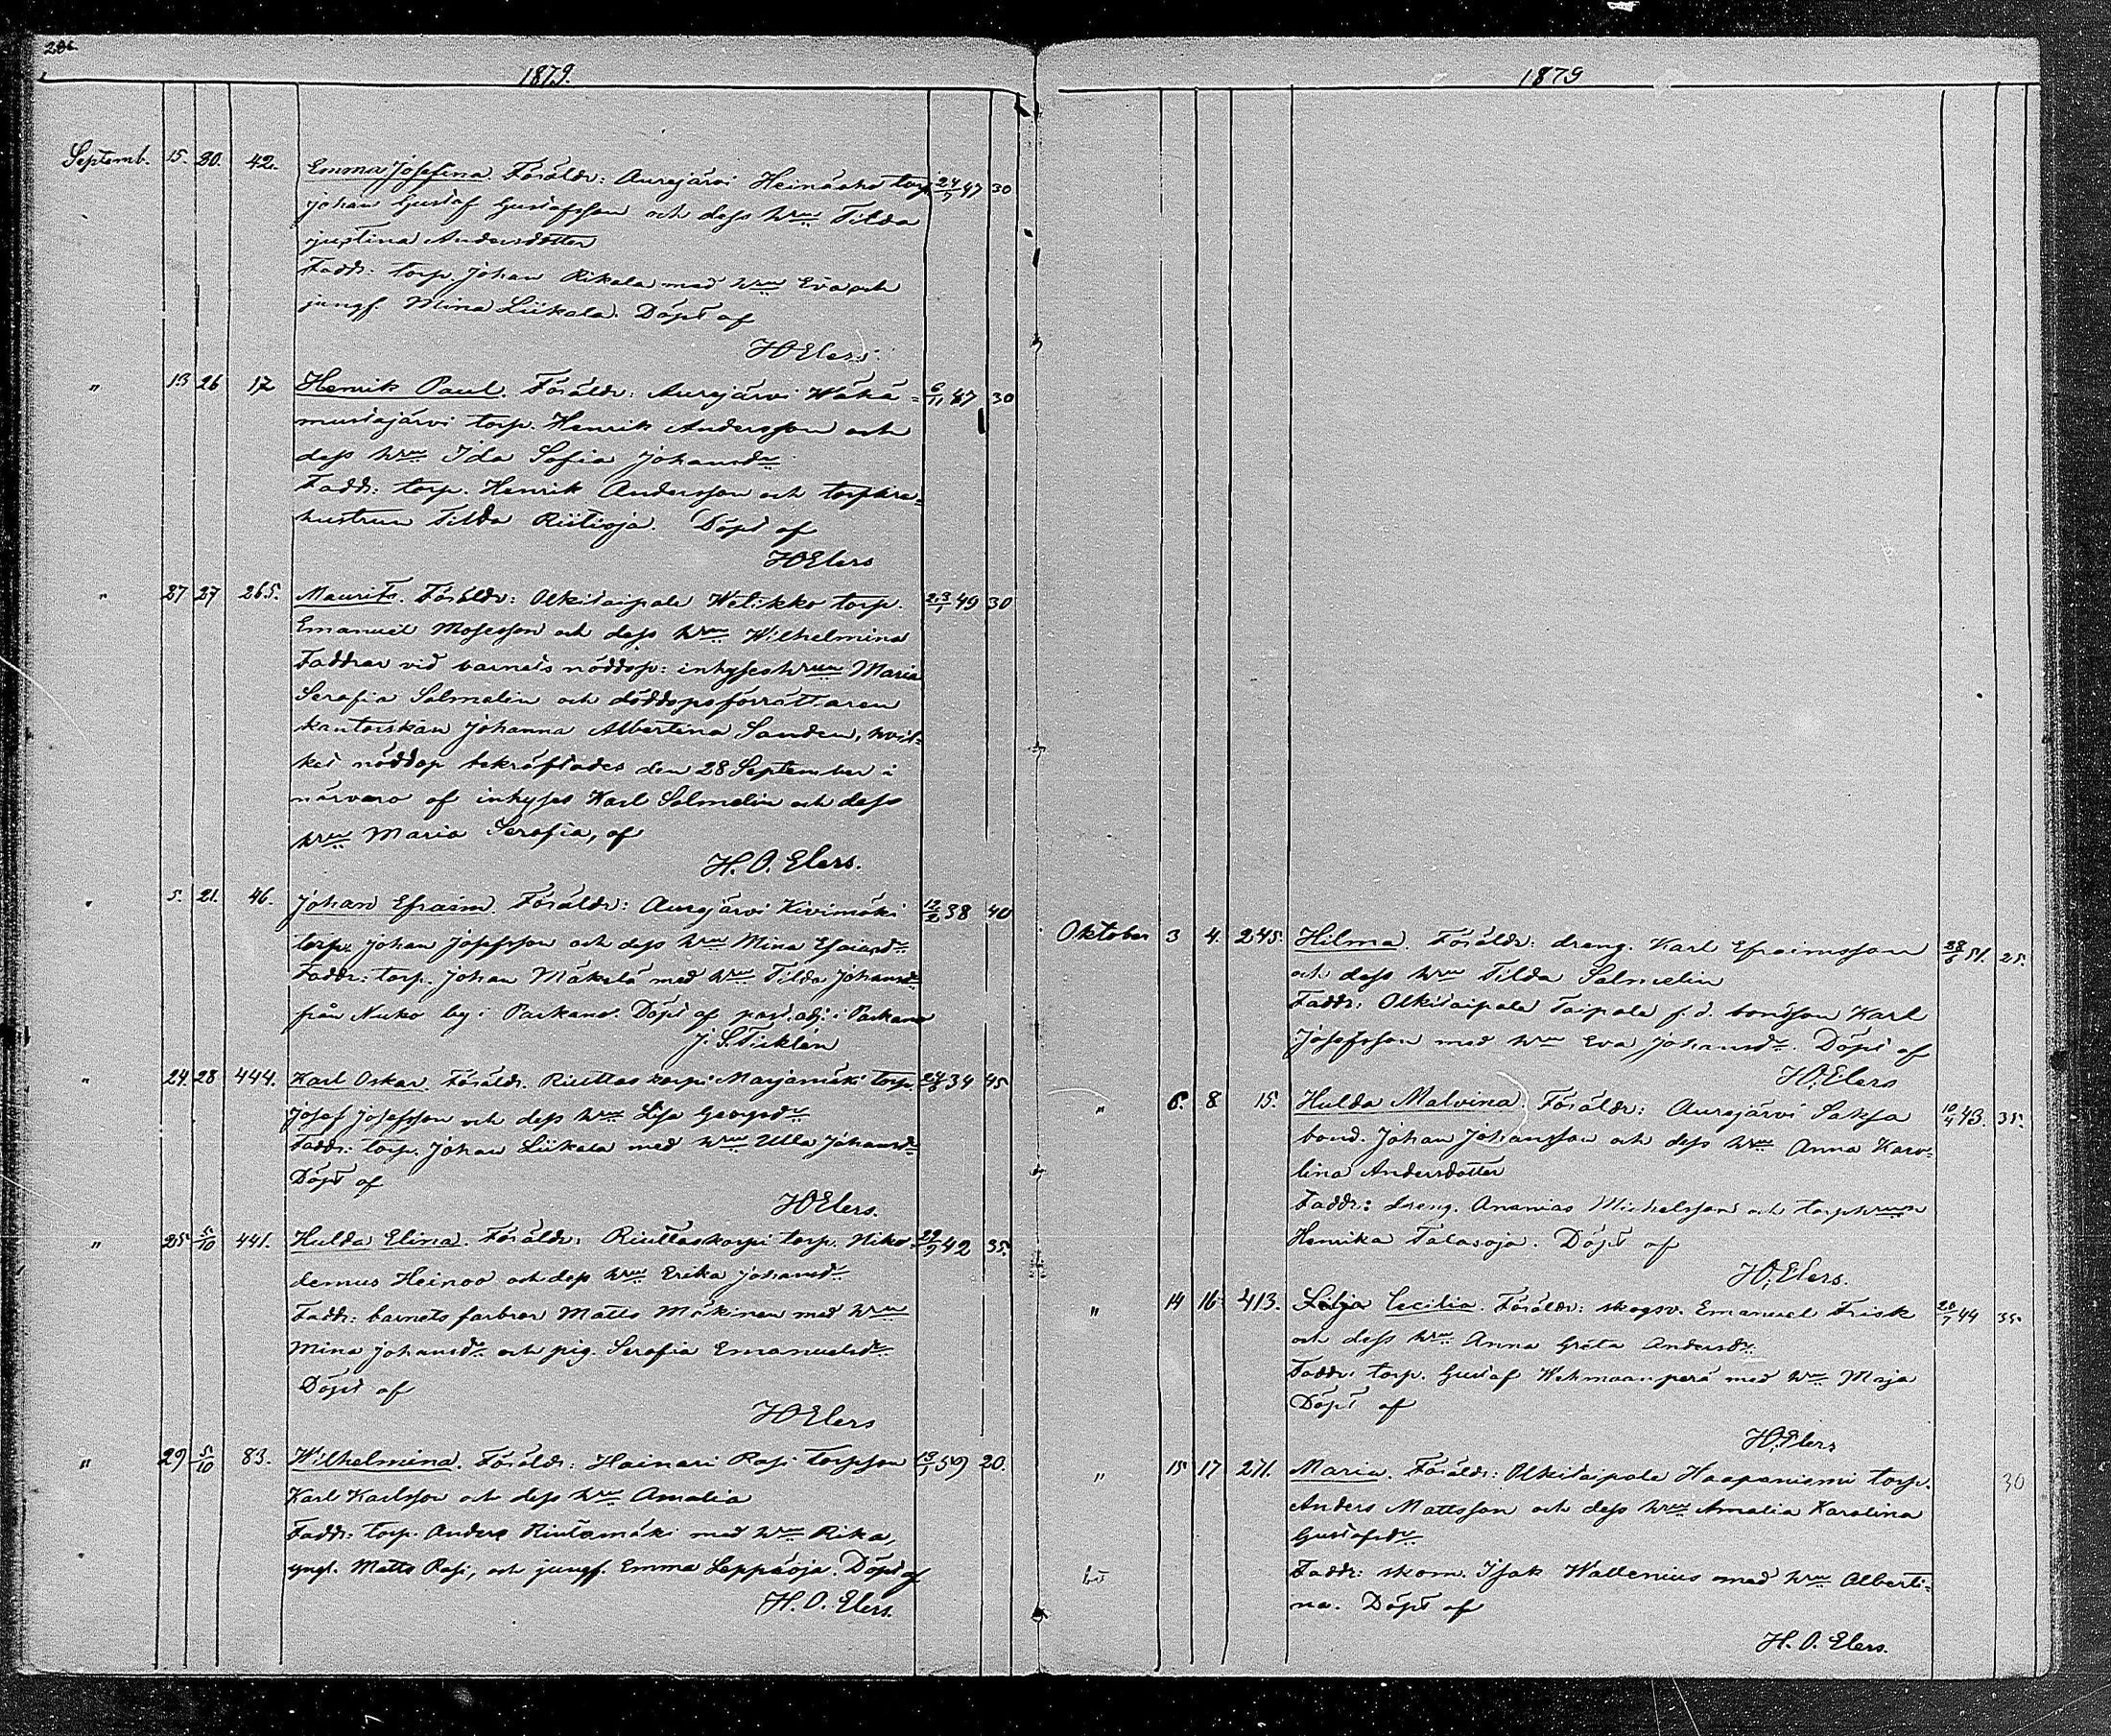 1879.
Septemb. 15. 20. 42. Emma Josefina. Föräldr: Aurejärvi Heinäaho torp. 24/7 47 30
Johan Gustaf Gustafsson och dess hru Tilda
Justina Andersdotter
Fadd: torp. Johan Rikala med hru Eva och
jungf. Mina Liikala. Döpt af
HOElers.
" 13 26 12 Henrik Paul. Föräldr: Aurejärvi Wähä= 6/11 47 30
mustajärvi torp. Henrik Andersson och
dess hru Ida Sofia Johansdr
Fadd: torp. Henrik Andersson och torpare=
hustrun Tilda Riitioja. Döpt af
HOElers
" 27 27 265. Maurits. Föräldr: Olkitaipale Wetikko torp. 23/1 49 30
Emanuel Mosesson och dess hru Wilhelmina
Faddrar vid barnets nöddop: inhyseshrun Maria
Serafia Salmelin och nöddopsförrättaren
kantorskan Johanna Albertina Sanden, hvil=
ket nöddop bekräftades den 28 September i
närvaro af inhyses Karl Salmelin och dess
hru Maria Serafia, af
H. O. Elers.
" 5. 21. 46. Johan Efraim. Föräldr: Aurejärvi Kivimäki 12/2 38 40
torp. Johan Josefsson och dess hru Mina Esaiasdr
Faddr: torp. Johan Mäkelä med hru Tilda Johansdr
från Kuko by i Parkano. Döpt af past. adj. i Parkano
J. S. Ticklén
" 24. 28 444. Karl Oskar. Föräldr. Riuttaskorpi Marjamäki torp. 24/8 34 45
Josef Josefsson och dess hru Lisa Georgsdr
Faddr: torp. Johan Liikala med hru Ulla Johansdr
Döpt af
HOElers.
" 25 5/10 441. Hulda Elina. Föräldr: Riuttaskorpi torp. Niko= 29/9 42 35.
demus Heinoo och dess hru Erika Johansdr
Faddr: barnets farbror Matts Mäkinen med hru
Mina Johansdr och pig. Serafia Emanuelsdr
Döpt af
HOElers
" 29 5/10 83. Wilhelmina. Föräldr: Hainari Rasi torpson 13/1 59 20.
Karl Karlsson och dess hru Amalia
Faddr: torp. Anders Riutamäki med hru Rika,
yngl. Matts Rasi, och jungf. Emma Leppäoja. Döpt af
H. O. Elers.
1879
Oktober 3 4. 245. Hilma. Föräldr: dreng. Karl Efraimsson 28/6 51. 25.
och dess hru Tilda Salmelin
Faddr: Olkitaipale Taipale f.d. bondson Karl
Josefsson med hru Eva Johansdr. Döpt af
HO.Elers
" 6. 8 15. Hulda Malvina. Föräldr: Aurejärvi Saksa 10/4 43. 35.
bond. Johan Johansson och dess hru Anna Karo=
lina Andersdotter
Faddr: dreng. Ananias Michelsson och torphrun
Henrika Talasoja. Döpt af
HO.Elers.
" 14 16 413. Lilja Cecilia. Föräldr: skogsv. Emanuel Frisk 20/7 44 35.
och dess hru Anna Greta Andersdr.
Faddr: torp. Gustaf Wehmaanperä med hru Maja
Döpt af
HO.Elers
" 15 17 271. Maria. Föräldr: Olkitaipale Haapaniemi torp. 30
Anders Mattsson och dess hru Amalia Karolina
Gustafsdr
Faddr: skom. Isak Wallenius med hru Alberti=
na. Döpt af
H. O. Elers.